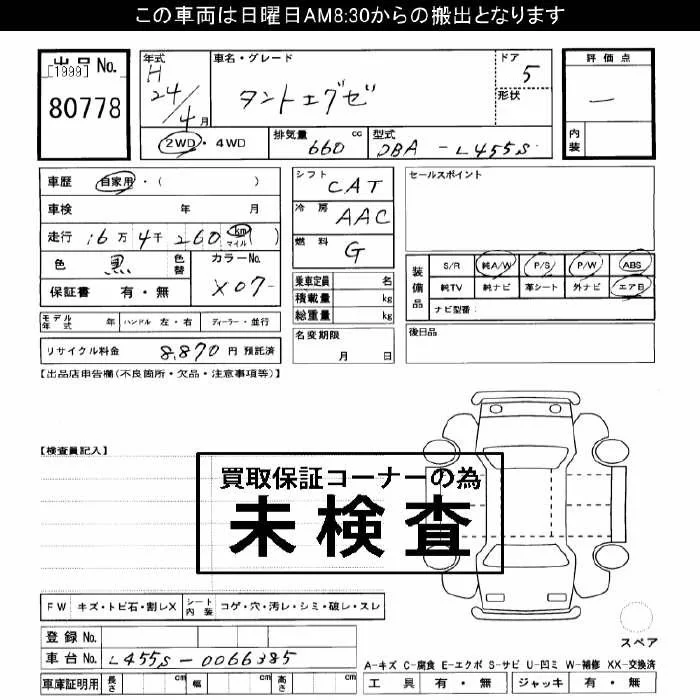 この車両は日曜日AM8:30からの搬出となります
出品 No.
[1999]
80778
年式
H
24/4月
車名・グレード
タントエグゼ
ドア
5
形状
評価点
—
内装
2WD・4WD
排気量 660 cc
型式 DBA-L455S
車歴 自家用・( )
車検 年 月
走行 16万4千260 km マイル ( )
色 黒 色替
カラーNo. X07-
保証書 有・無
シフト CAT
冷房 AAC
燃料 G
乗車定員 名
積載量 kg
総重量 kg
セールスポイント
装備品
S/R 純A/W P/S P/W ABS
純TV 純ナビ 革シート 外ナビ エアB
ナビ型番:
モデル年式 年 ハンドル 左・右 ディーラー・並行
名変期限
月 日
後日品
リサイクル料金 8,870 円 預託済
【出品店申告欄(不良箇所・欠品・注意事項等)】
【検査員記入】
買取保証コーナーの為
未検査
FW キズ・トビ石・割レX シート内装 コゲ・穴・汚レ・シミ・破レ・スレ
スペア
登録 No.
車台 No. L455S-0066385
A-キズ C-腐食 E-エクボ S-サビ U-凹ミ W-補修 XX-交換済
車庫証明用 長さ cm 幅 cm 高さ cm
工具 有・無 ジャッキ 有・無